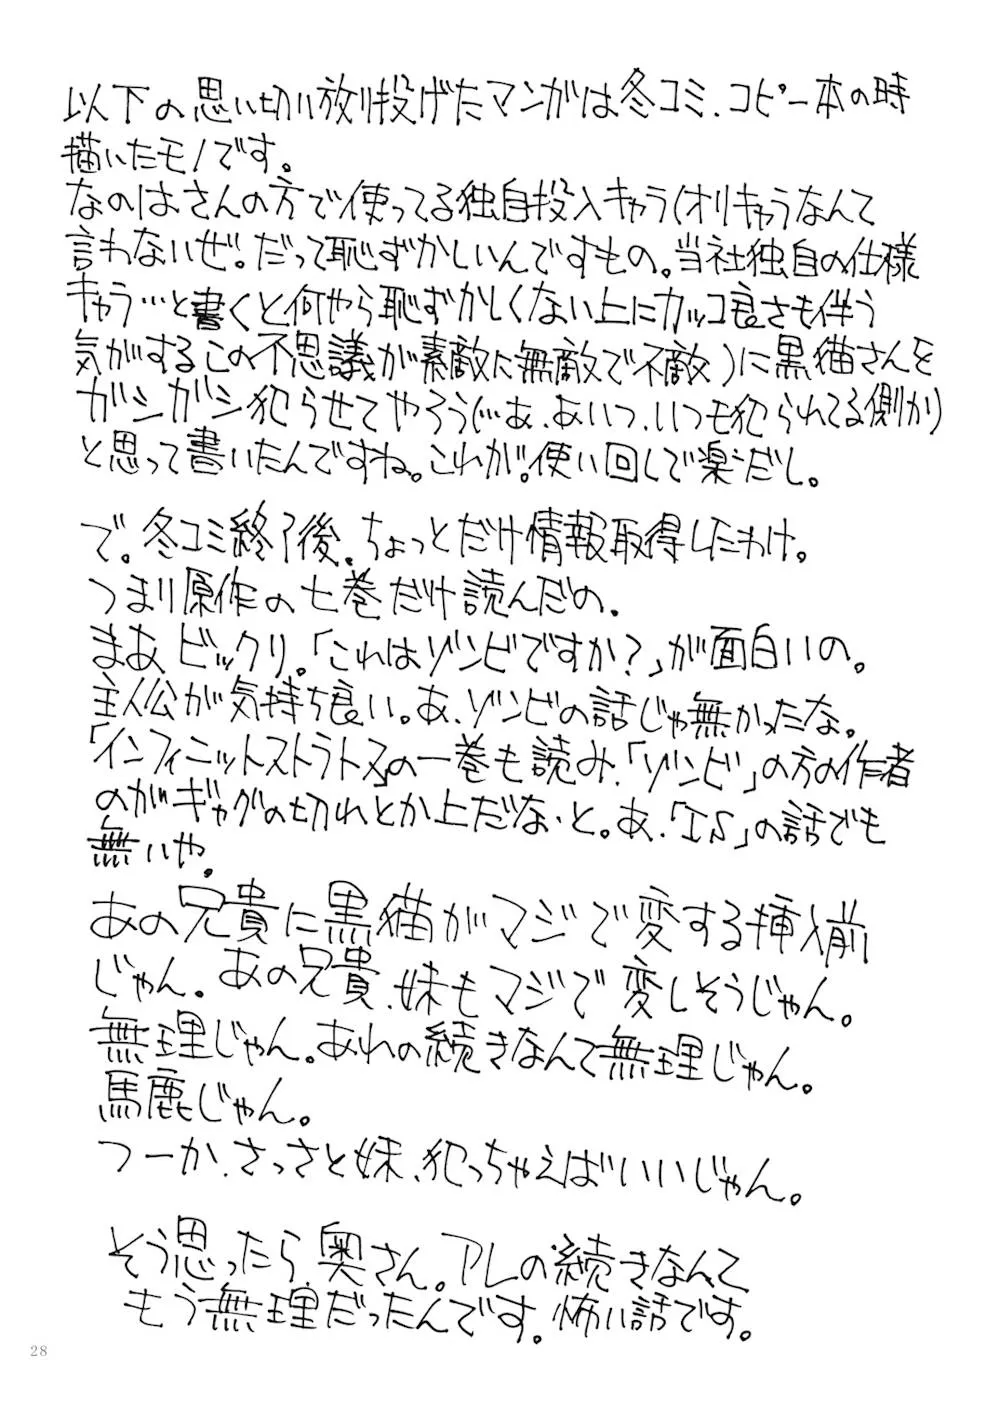 以下の思い切り放り投げたマンガは冬コミ、コピー本の時
描いたモノです。
なのはさんの方で使ってる独自投入キャラ(オリキャラなんて
言わないぜ。だって恥ずかしいんですもの。当社独自の仕様
キャラ…と書くと何やら恥ずかしくない上にカッコ良さも伴う
気がするこの不思議が素敵に無敵で不敵)に黒猫さんを
ガシガシ犯らせてやろう(あ、あいつ、いつも犯られてる側か)
と思って書いたんですね。これが。使い回しで楽だし。
で。冬コミ終了後。ちょっとだけ情報取得したわけ。
つまり原作の七巻だけ読んだの。
まあ、ビックリ。「これはゾンビですか?」が面白いの。
主人公が気持ち良い。あ、ゾンビの話じゃ無かったな。
「インフィニットストラトス」の一巻も読み、「ゾンビ」の方の作者
のがギャグの切れとか上だな、と。あ、「IS」の話でも
無いや。
あの兄貴に黒猫がマジで変する挿入前
じゃん。あの兄貴、妹もマジで変しそうじゃん。
無理じゃん。あれの続きなんて無理じゃん。
馬鹿じゃん。
つーか、さっさと妹、犯っちゃえばいいじゃん。
そう思ったら、奥さん。アレの続きなんて
もう無理だったんです。怖い話です。
28